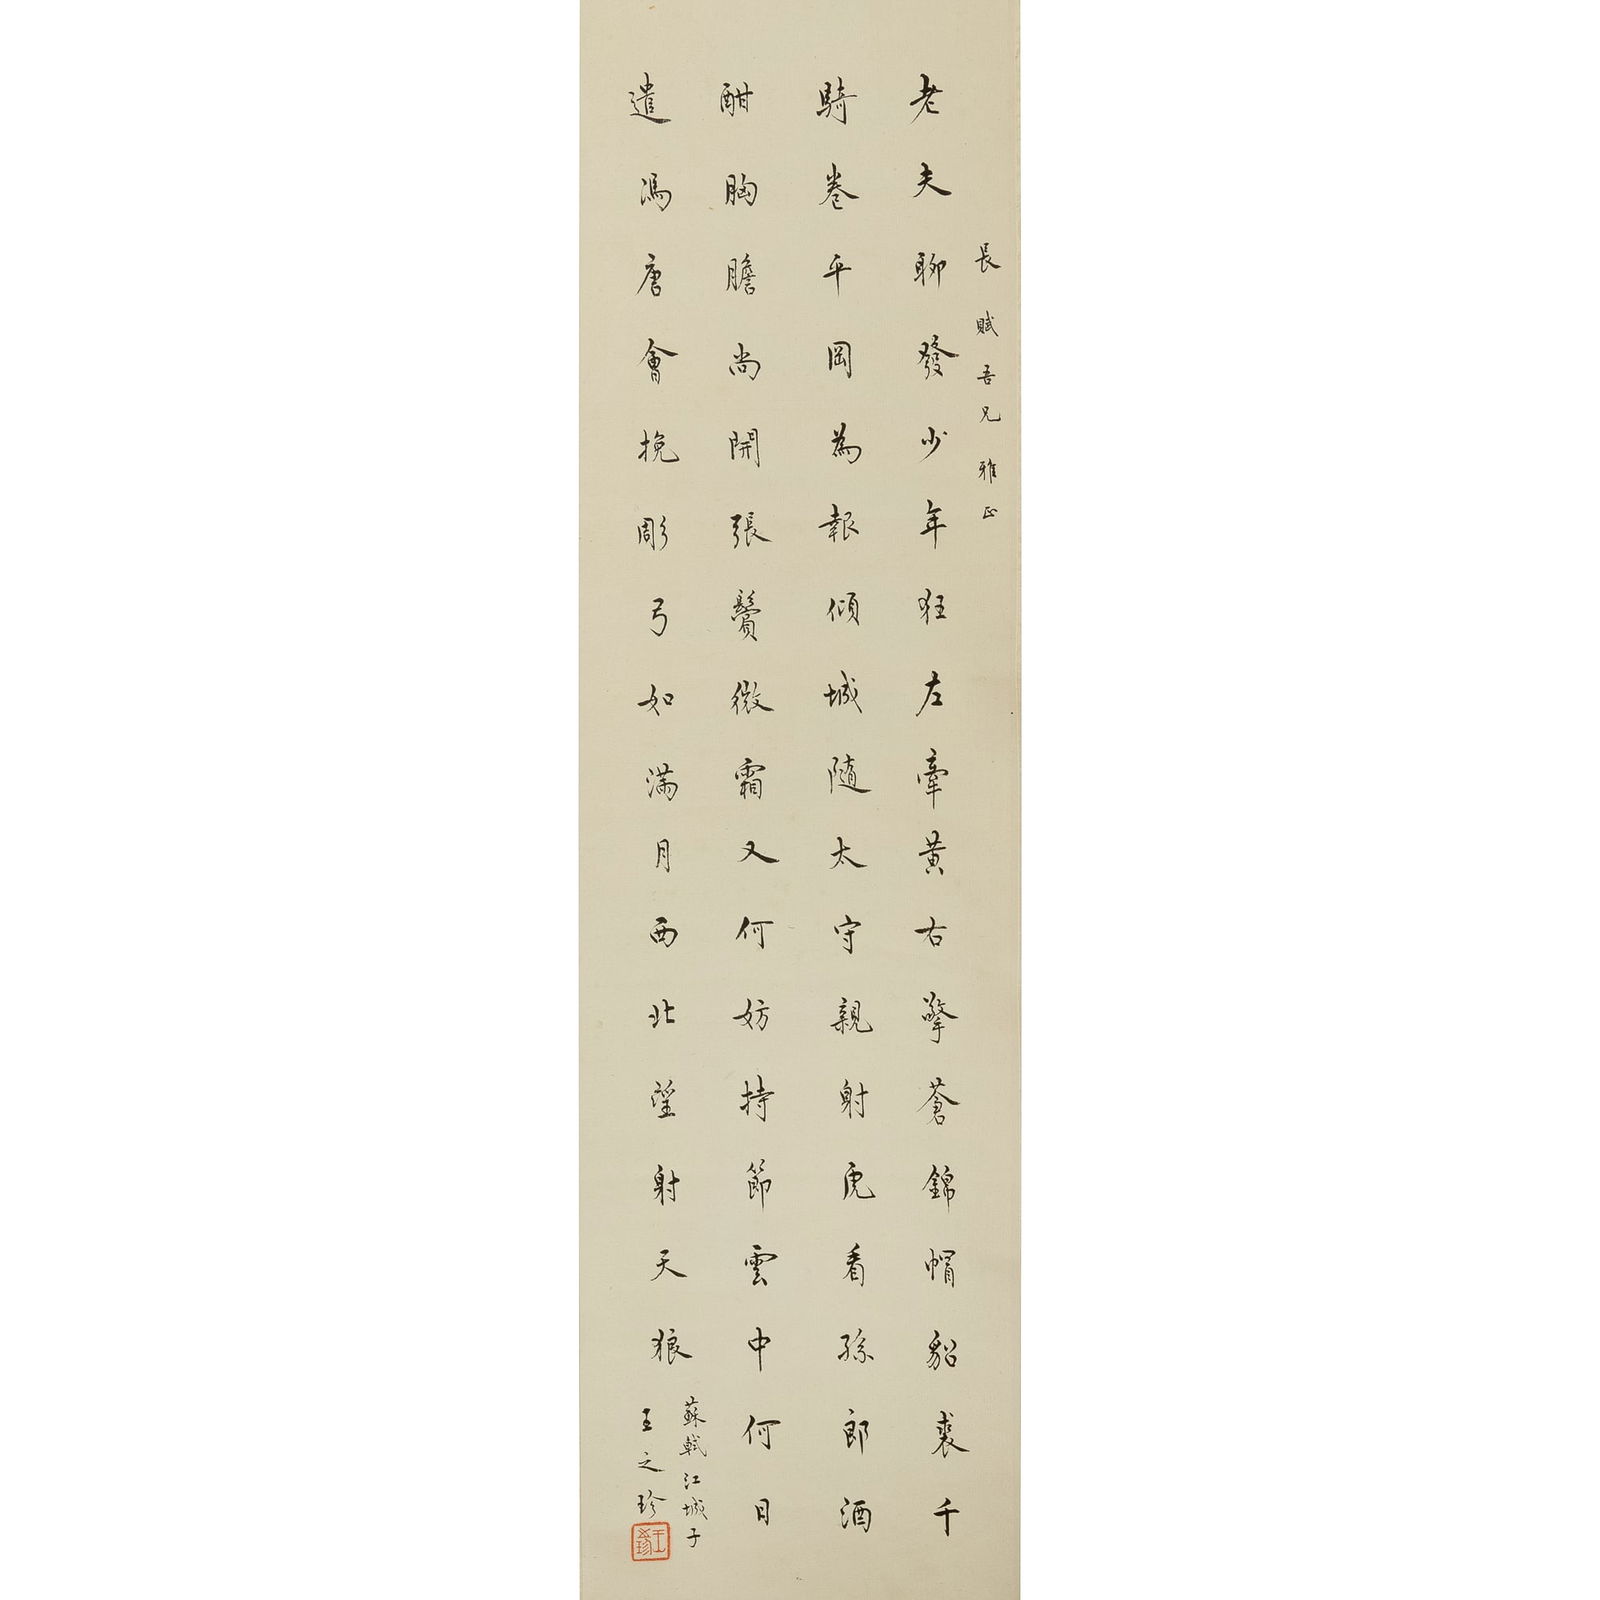 長賦吾兄雅正
老夫聊發少年狂左牽黃右擎蒼錦帽貂裘千
騎卷平岡為報傾城隨太守親射虎看孫郎酒
酣胸膽尚開張鬢微霜又何妨持節雲中何日
遣馮唐會挽彫弓如滿月西北望射天狼
蘇軾江城子
王之珍
王之珍